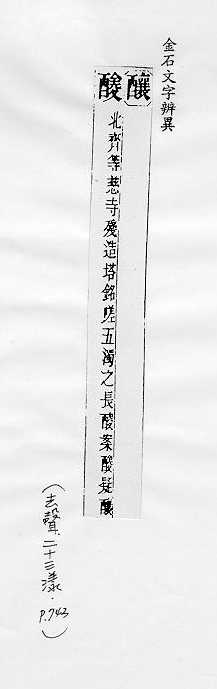 金石文字辨異
釀
酸
北齊等慈寺殘造塔銘嗟五濁之長酸案酸疑釀
(去聲.二十三漾.P.743)